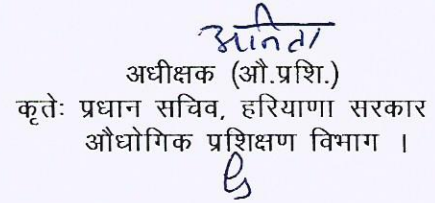 अनिता
अधीक्षक (औ.प्रशि.)
कृतेः प्रधान सचिव, हरियाणा सरकार
औधोगिक प्रशिक्षण विभाग ।